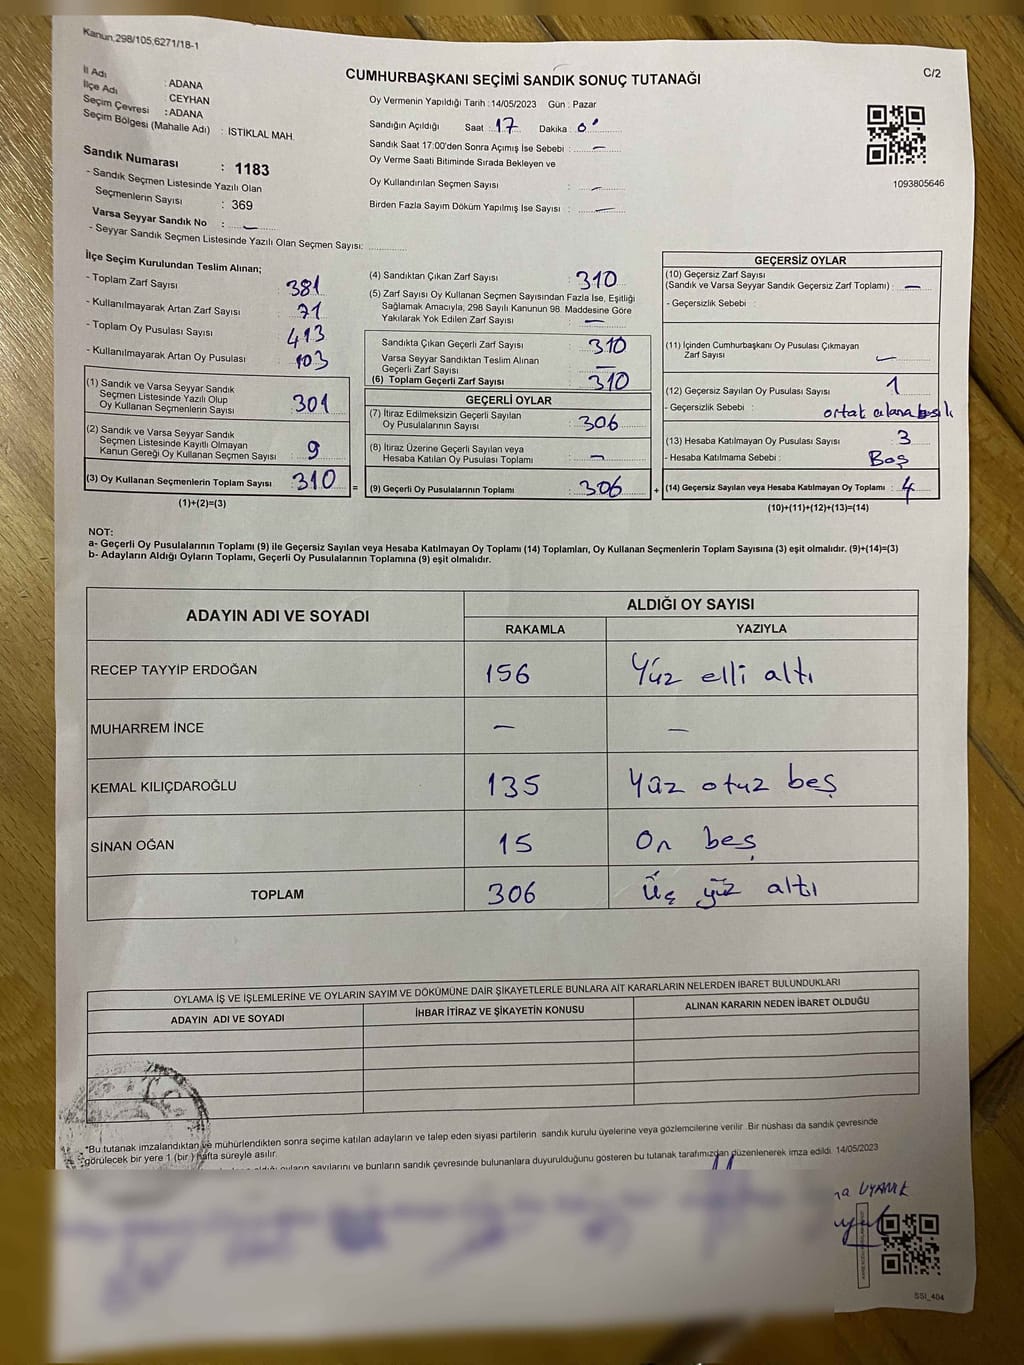 Kanun,298/105,6271/18-1
C/2
CUMHURBAŞKANI SEÇİMİ SANDIK SONUÇ TUTANAĞI
İl Adı : ADANA
İlçe Adı : CEYHAN
Seçim Çevresi : ADANA
Seçim Bölgesi (Mahalle Adı) : İSTİKLAL MAH.
Sandık Numarası : 1183
- Sandık Seçmen Listesinde Yazılı Olan
Seçmenlerin Sayısı : 369
Varsa Seyyar Sandık No : —
- Seyyar Sandık Seçmen Listesinde Yazılı Olan Seçmen Sayısı:
Oy Vermenin Yapıldığı Tarih : 14/05/2023 Gün : Pazar
Sandığın Açıldığı Saat : 17 Dakika : 0
Sandık Saat 17:00'den Sonra Açımış İse Sebebi : —
Oy Verme Saati Bitiminde Sırada Bekleyen ve
Oy Kullandırılan Seçmen Sayısı : —
Birden Fazla Sayım Döküm Yapılmış İse Sayısı : —
1093805646
İlçe Seçim Kurulundan Teslim Alınan;
- Toplam Zarf Sayısı : 381
- Kullanılmayarak Artan Zarf Sayısı : 71
- Toplam Oy Pusulası Sayısı : 413
- Kullanılmayarak Artan Oy Pusulası : 103
(1) Sandık ve Varsa Seyyar Sandık
Seçmen Listesinde Yazılı Olup
Oy Kullanan Seçmenlerin Sayısı : 301
(2) Sandık ve Varsa Seyyar Sandık
Seçmen Listesinde Kayıtlı Olmayan
Kanun Gereği Oy Kullanan Seçmen Sayısı : 9
(3) Oy Kullanan Seçmenlerin Toplam Sayısı : 310 =
(1)+(2)=(3)
(4) Sandıktan Çıkan Zarf Sayısı : 310
(5) Zarf Sayısı Oy Kullanan Seçmen Sayısından Fazla İse, Eşitliği
Sağlamak Amacıyla, 298 Sayılı Kanunun 98. Maddesine Göre
Yakılarak Yok Edilen Zarf Sayısı : —
Sandıkta Çıkan Geçerli Zarf Sayısı : 310
Varsa Seyyar Sandıktan Teslim Alınan
Geçerli Zarf Sayısı : —
(6) Toplam Geçerli Zarf Sayısı : 310
GEÇERLİ OYLAR
(7) İtiraz Edilmeksizin Geçerli Sayılan
Oy Pusulalarının Sayısı : 306
(8) İtiraz Üzerine Geçerli Sayılan veya
Hesaba Katılan Oy Pusulası Toplamı : —
(9) Geçerli Oy Pusulalarının Toplamı : 306 +
GEÇERSİZ OYLAR
(10) Geçersiz Zarf Sayısı
(Sandık ve Varsa Seyyar Sandık Geçersiz Zarf Toplamı) : —
- Geçersizlik Sebebi :
(11) İçinden Cumhurbaşkanı Oy Pusulası Çıkmayan
Zarf Sayısı : —
(12) Geçersiz Sayılan Oy Pusulası Sayısı : 1
- Geçersizlik Sebebi : ortak alana basılı
(13) Hesaba Katılmayan Oy Pusulası Sayısı : 3
- Hesaba Katılmama Sebebi : Boş
(14) Geçersiz Sayılan veya Hesaba Katılmayan Oy Toplamı : 4
(10)+(11)+(12)+(13)=(14)
NOT:
a- Geçerli Oy Pusulalarının Toplamı (9) ile Geçersiz Sayılan veya Hesaba Katılmayan Oy Toplamı (14) Toplamları, Oy Kullanan Seçmenlerin Toplam Sayısına (3) eşit olmalıdır. (9)+(14)=(3)
b- Adayların Aldığı Oyların Toplamı, Geçerli Oy Pusulalarının Toplamına (9) eşit olmalıdır.
ADAYIN ADI VE SOYADI
ALDIĞI OY SAYISI
RAKAMLA YAZIYLA
RECEP TAYYİP ERDOĞAN 156 Yüz elli altı
MUHARREM İNCE — —
KEMAL KILIÇDAROĞLU 135 Yüz otuz beş
SİNAN OĞAN 15 On beş
TOPLAM 306 Üç yüz altı
OYLAMA İŞ VE İŞLEMLERİNE VE OYLARIN SAYIM VE DÖKÜMÜNE DAİR ŞİKAYETLERLE BUNLARA AİT KARARLARIN NELERDEN İBARET BULUNDUKLARI
ADAYIN ADI VE SOYADI İHBAR İTİRAZ VE ŞİKAYETİN KONUSU ALINAN KARARIN NEDEN İBARET OLDUĞU
T.C.
*Bu tutanak imzalandıktan ve mühürlendikten sonra seçime katılan adayların ve talep eden siyasi partilerin sandık kurulu üyelerine veya gözlemcilerine verilir. Bir nüshası da sandık çevresinde
görülecek bir yere 1 (bir) hafta süreyle asılır.
oyların sayılarını ve bunların sandık çevresinde bulunanlara duyurulduğunu gösteren bu tutanak tarafımızdan düzenlenerek imza edildi. 14/05/2023
UYANIK
SSI_404